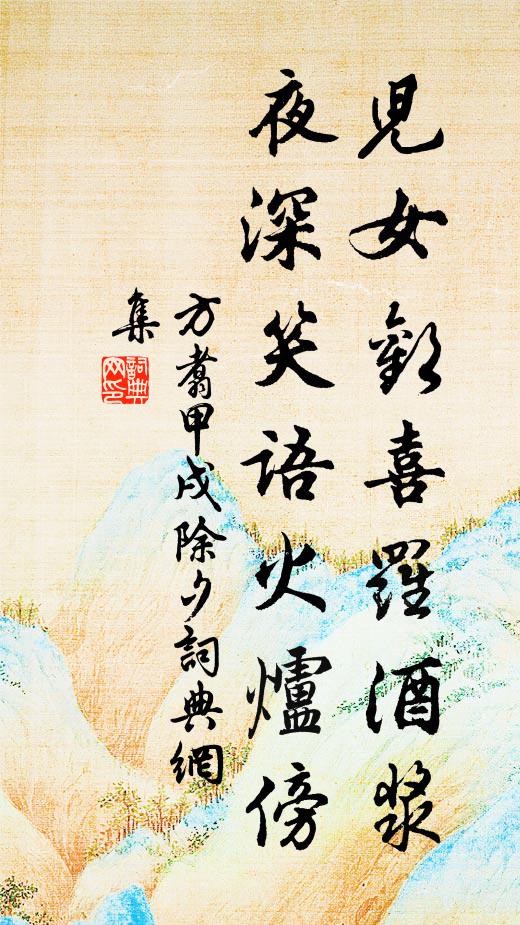 兒女歡喜羅酒漿
夜深笑語火爐傍
方翥甲戌除夕詞典網
集
詞典
网印